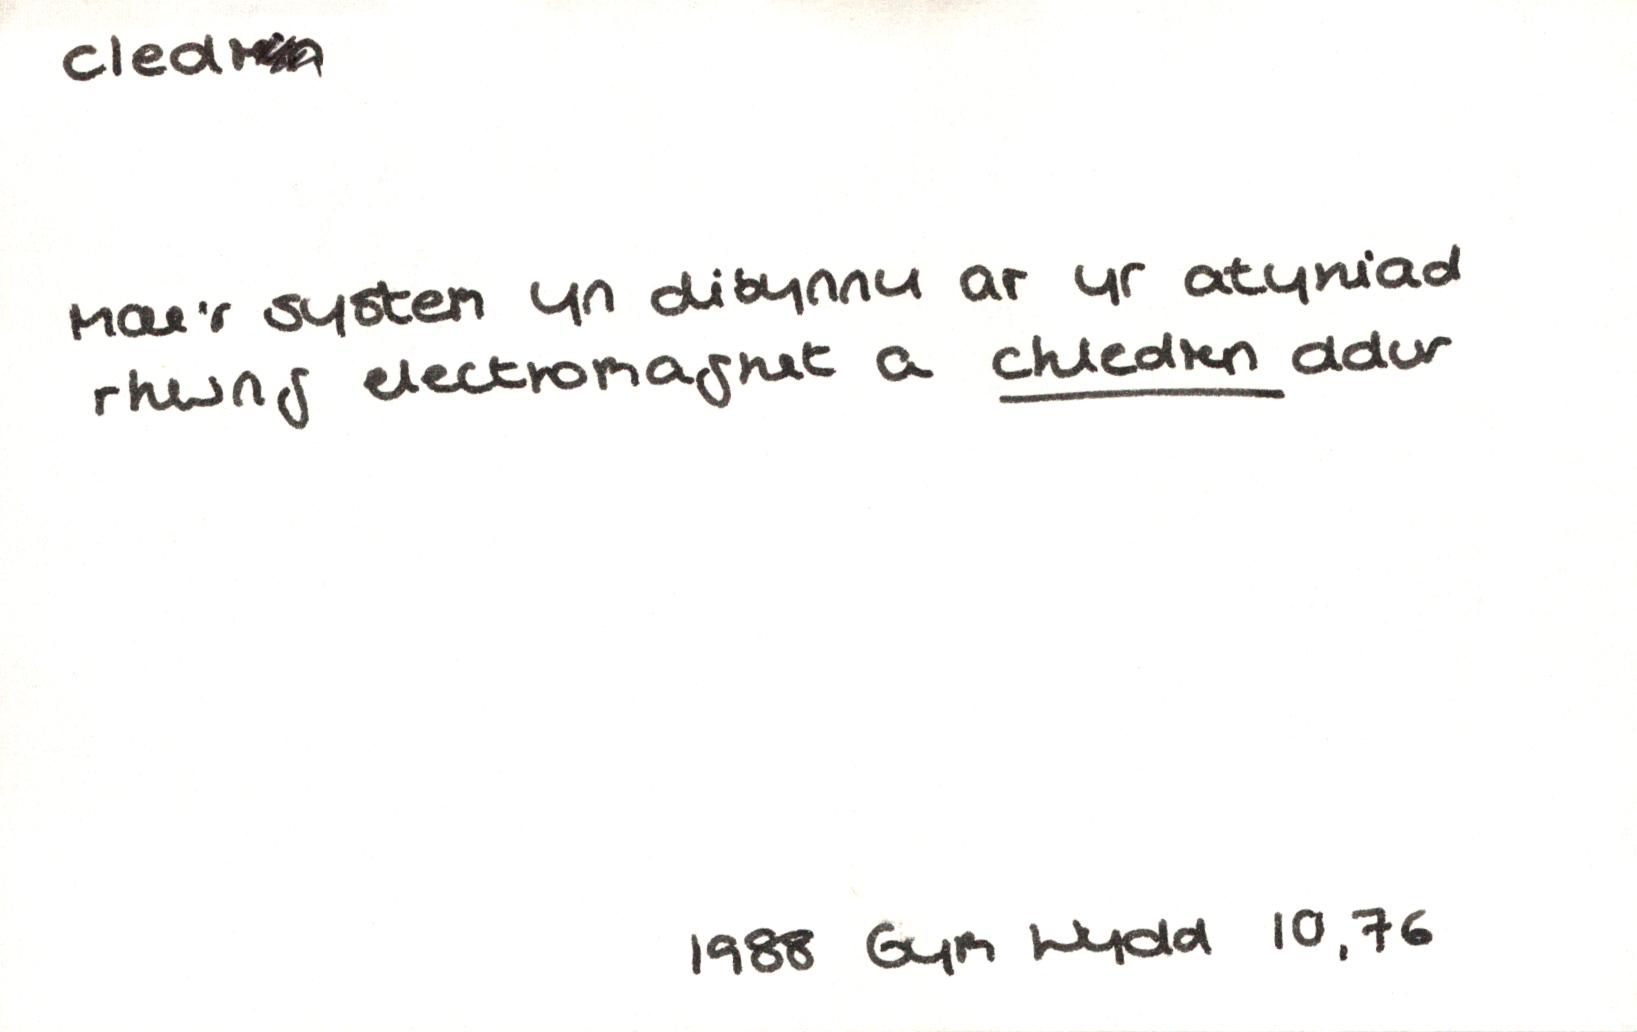 cledr
Mae'r system yn dibynnu ar yr atyniad
rhwng electromagnet a chledren ddur
1988 Gym Wydd 10,76